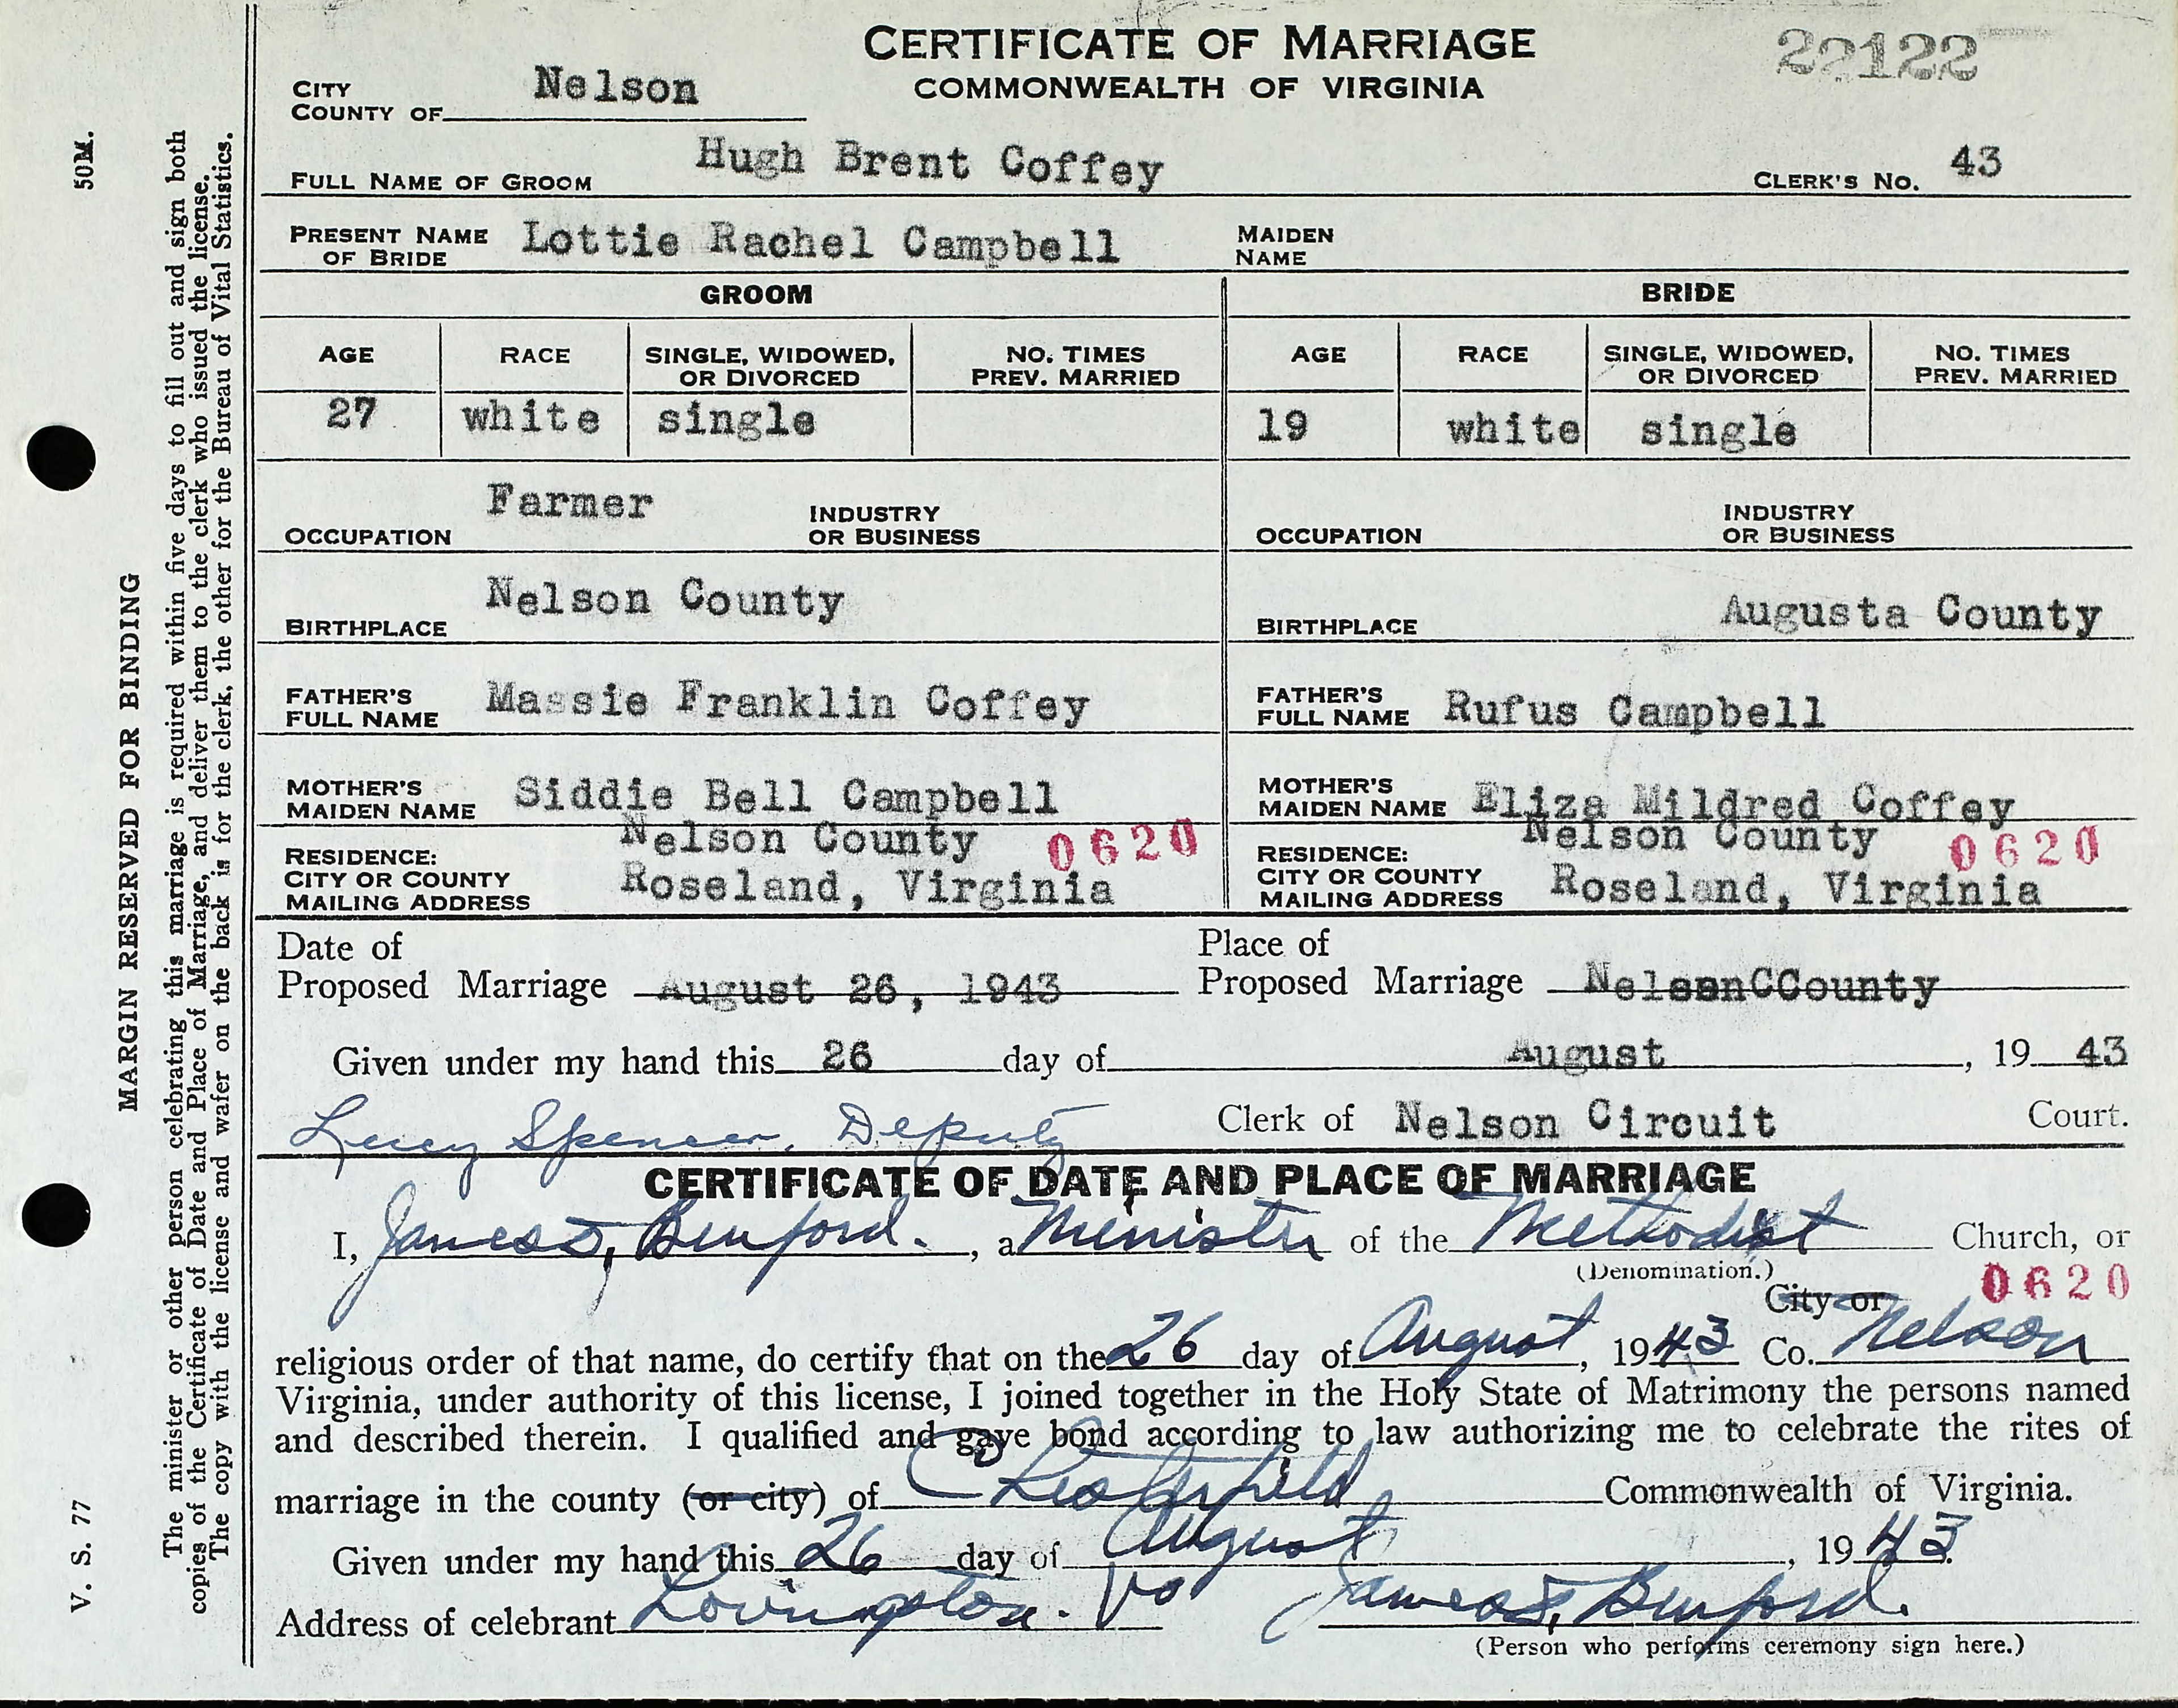 CERTIFICATE OF MARRIAGE
COMMONWEALTH OF VIRGINIA
22122
CITY
COUNTY OF Nelson
FULL NAME OF GROOM Hugh Brent Coffey CLERK'S NO. 43
PRESENT NAME OF BRIDE Lottie Rachel Campbell MAIDEN NAME
GROOM BRIDE
AGE RACE SINGLE, WIDOWED, OR DIVORCED NO. TIMES PREV. MARRIED AGE RACE SINGLE, WIDOWED, OR DIVORCED NO. TIMES PREV. MARRIED
27 white single 19 white single
OCCUPATION Farmer INDUSTRY OR BUSINESS OCCUPATION INDUSTRY OR BUSINESS
BIRTHPLACE Nelson County BIRTHPLACE Augusta County
FATHER'S FULL NAME Massie Franklin Coffey FATHER'S FULL NAME Rufus Campbell
MOTHER'S MAIDEN NAME Siddie Bell Campbell MOTHER'S MAIDEN NAME Eliza Mildred Coffey
RESIDENCE: CITY OR COUNTY Nelson County 0620 RESIDENCE: CITY OR COUNTY Nelson County 0620
MAILING ADDRESS Roseland, Virginia MAILING ADDRESS Roseland, Virginia
Date of Proposed Marriage August 26, 1943 Place of Proposed Marriage NelsonCCounty
Given under my hand this 26 day of August, 19 43
Lucy Spencer, Deputy Clerk of Nelson Circuit Court.
CERTIFICATE OF DATE AND PLACE OF MARRIAGE
I, James T. Binford., a Minister of the Methodist Church, or
(Denomination.)
City or 0620
religious order of that name, do certify that on the 26 day of August, 1943 Co. Nelson
Virginia, under authority of this license, I joined together in the Holy State of Matrimony the persons named
and described therein. I qualified and gave bond according to law authorizing me to celebrate the rites of
marriage in the county (or city) of Chesterfield Commonwealth of Virginia.
Given under my hand this 26 day of August, 1943
Address of celebrant Lovingston. Va James T. Binford.
(Person who performs ceremony sign here.)
50M.
MARGIN RESERVED FOR BINDING
V. S. 77
The minister or other person celebrating this marriage is required within five days to fill out and sign both
copies of the Certificate of Date and Place of Marriage, and deliver them to the clerk who issued the license.
The copy with the license and wafer on the back is for the clerk, the other for the Bureau of Vital Statistics.